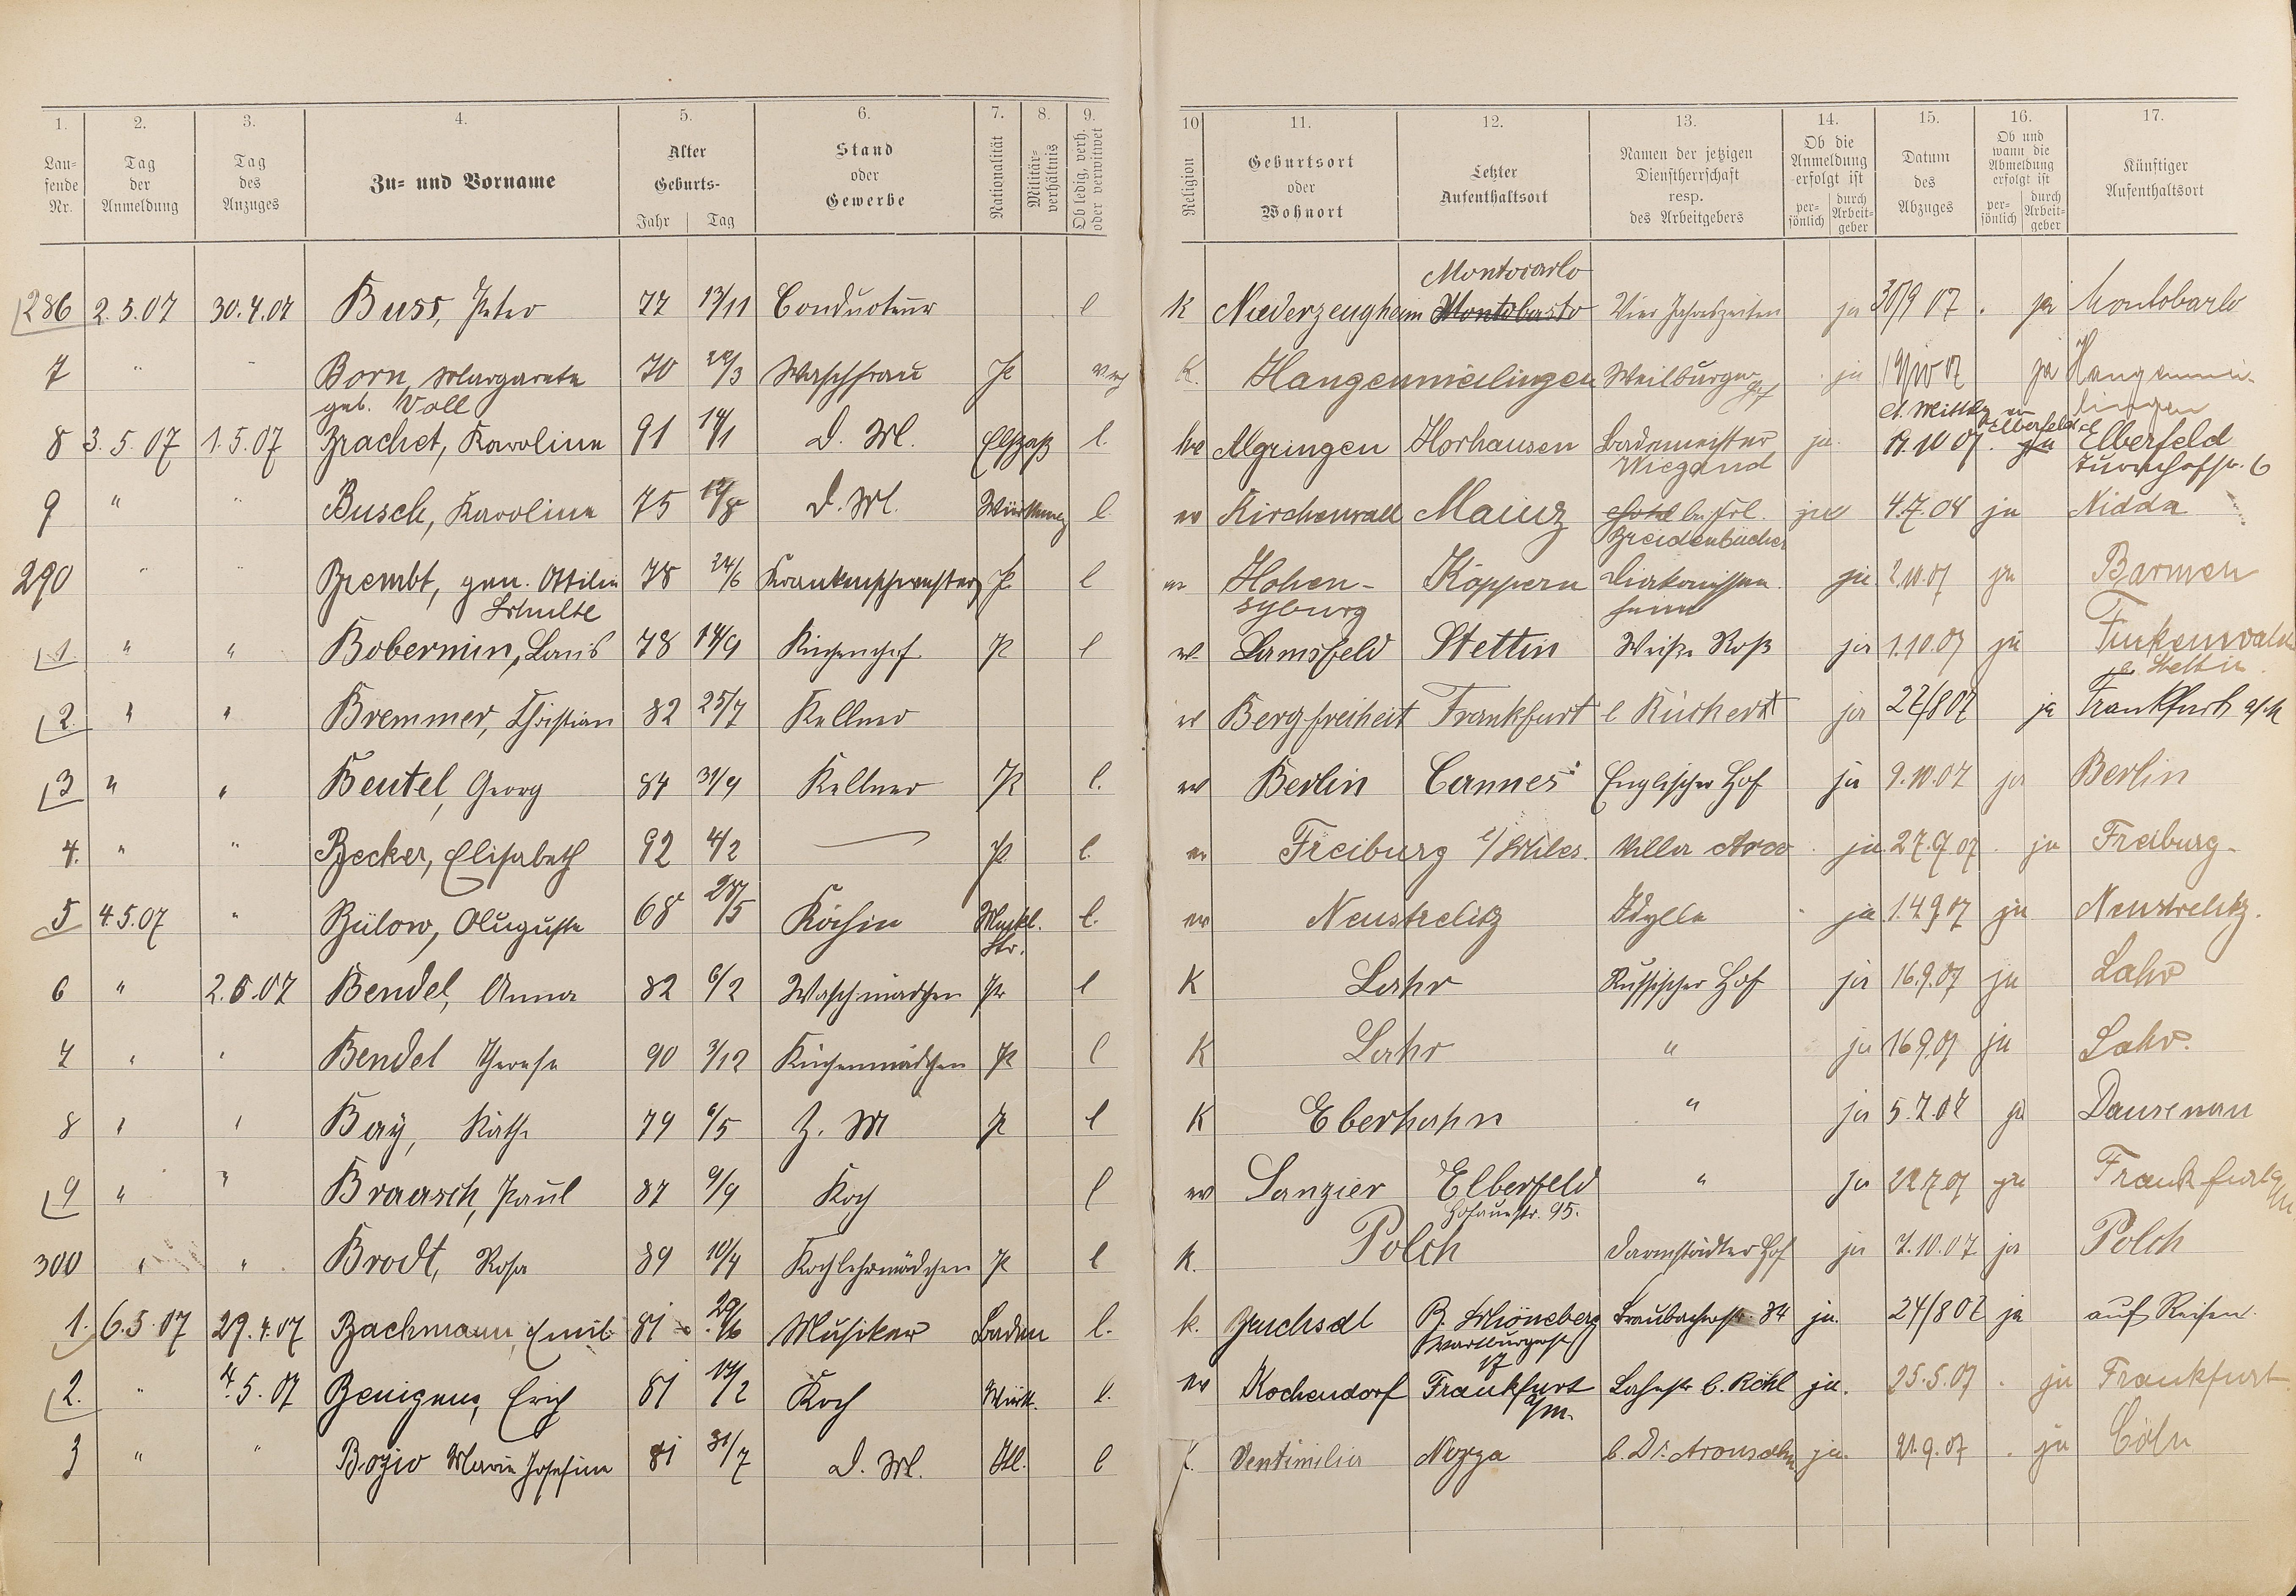 1. 2. 3. 4. 5. 6. 7. 8. 9. 10 11. 12. 13. 14. 15. 16. 17.
Lau- fende Nr. Tag der Anmeldung Tag des Anzuges Zu- und Vorname Alter Geburts- Jahr Tag Stand oder Gewerbe Nationalität Militär- verhältnis Ob ledig, verh. oder verwitwet Religion Geburtsort oder Wohnort Letzter Aufenthaltsort Namen der jetzigen Dienstherrschaft resp. des Arbeitgebers Ob die Anmeldung erfolgt ist per- sönlich durch Arbeit- geber Datum des Abzuges Ob und wann die Abmeldung erfolgt ist per- sönlich durch Arbeit- geber Künftiger Aufenthaltsort
Montocarlo
286 2.5.07 30.4.07 Buss, Peter 77 13/11 Conducteur l k Niederzeugheim Vier Jahreszeiten ja 30/9 07 ja
7 " Born, Margarete 70 /3 Waschfrau P K. Hangenmeilingen Weilburger Hof ja 07 ja Hangenmei-
geb. Voll lingen
8 3.5.07 1.5.07 Brachet, Karoline 91 14/1 D. M. Elsaß l. Algringen Horhausen Bademeister ja 19.10 07. ja Elberfeld
Wiegand 6
9 " " Busch, Karoline 75 /8 D. M. l Kirchenwall Mainz ja 4.7.08 ja Nidda
290 " " Brembt, gen. Ottilie 78 24/6 Krankenschwester P l Hohen- Köppern Diakonissen- ja 2.10.07 ja Barmen
Schulte syburg heim
1. " " Bobermin, Louis 78 14/9 Küchenchef P l Lamsfeld Stettin Weiße Roß ja 1.10.07 ja Finkenwalde
b. Stettin
2. " " Bremmer, Christian 82 25/7 Kellner Bergfreiheit Frankfurt ja 22/8 07 ja Frankfurt a/M
3 " " Beutel, Georg 84 31/9 Kellner P l. Berlin Cannes Englischer Hof ja 9.10.07 ja Berlin
4. " " Becker, Elisabeth 92 4/2 P l. Freiburg i/Schles. Villa ja 27.9.07 ja Freiburg.
5 4.5.07 " Bülow, Auguste 68 /5 Köchin Meckl. l. Neustrelitz Idylle ja 14.9.07 ja Neustrelitz.
Str.
6 " 2.5.07 Bendel, Anna 82 6/2 Waschmädchen Pr l K Lahr Russischer Hof ja 16.9.07 ja Lahr
7 " " Bendel Therese 90 3/12 Küchenmädchen P l K Lahr " ja 16 9.07 ja Lahr.
8 " " Bay, Käthe 79 6/5 Z. M P l K Eberhahn " ja 5.7.07 ja Dausenau
9 " " Braasch, Paul 87 9/9 Koch l Sanzier Elberfeld " ja 22.7.07 ja Frankfurt a/M
Hofauestr. 95.
300 " " Brodt, Rosa 89 10/4 Kochlehrmädchen P l k. Polch Darmstädter Hof ja 7.10.07 ja Polch
1. 6.5.07 29.4.07 Bachmann, Emil 81 29/6 Musiker Baden l. k. Bruchsal B. Schöneberg Braubacherstr. 34 ja. 24/8 07 ja auf Reisen.
Wartburgerstr.
17
2. " 4.5.07 Benigens, Erich 81 /2 Koch Württ. l. Kochendorf Frankfurt b. Röhl ja. 25.5.07 ja Frankfurt
a/M.
3 " " Bozio Marie Josefine 81 31/7 D. M. Itl. l k. Ventimilia Nizza b. Dr. Aronsohn ja. 21.9.07 ja Cöln